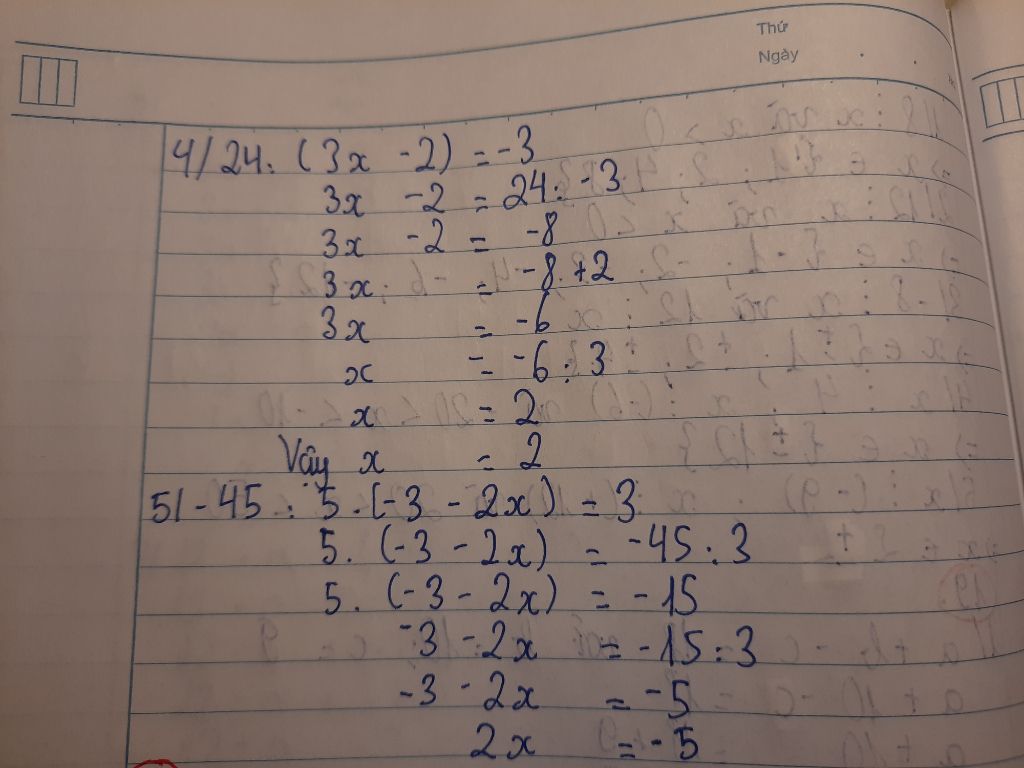 Thứ
Ngày
4/ 24 : (3x - 2) = -3
3x - 2 = 24 : -3
3x - 2 = -8
3x = -8 + 2
3x = -6
x = -6 : 3
x = 2
Vậy x = 2
5/ -45 : 5 . (-3 - 2x) = 3
5 . (-3 - 2x) = -45 : 3
5 . (-3 - 2x) = -15
-3 - 2x = -15 : 3
-3 - 2x = -5
2x = -5